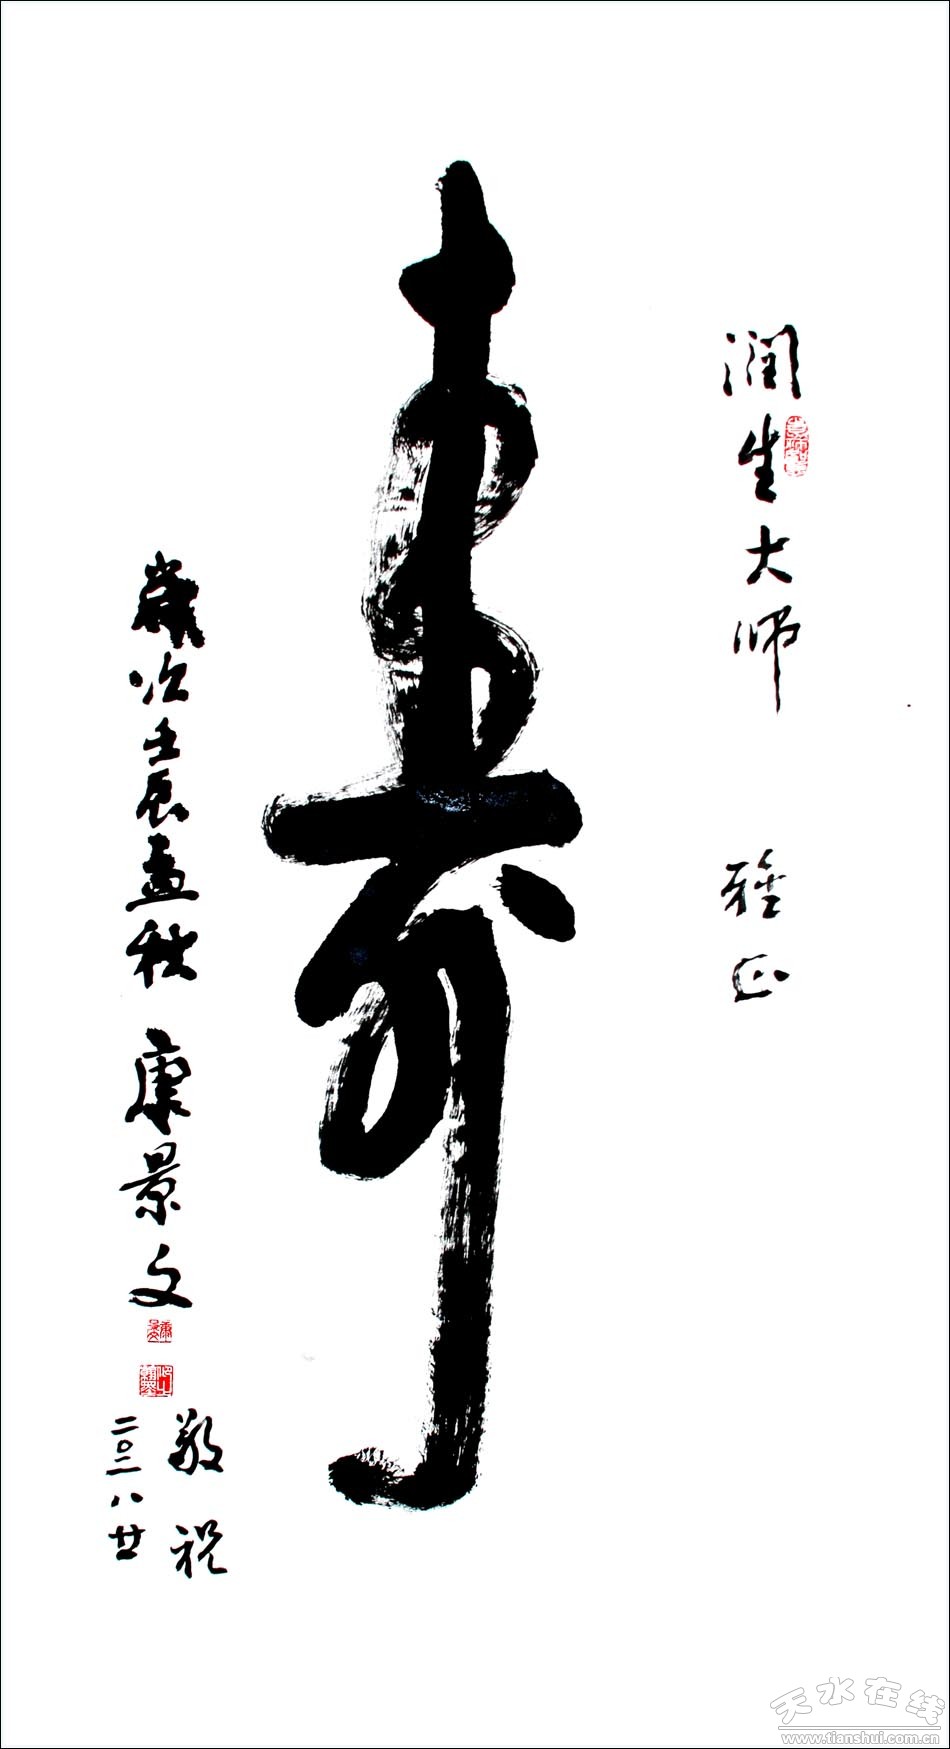 润生大师 雅正
壽
歲次壬辰孟秋 康景文
敬祝
二〇一二 八 廿
天水在线
www.tianshui.com.cn